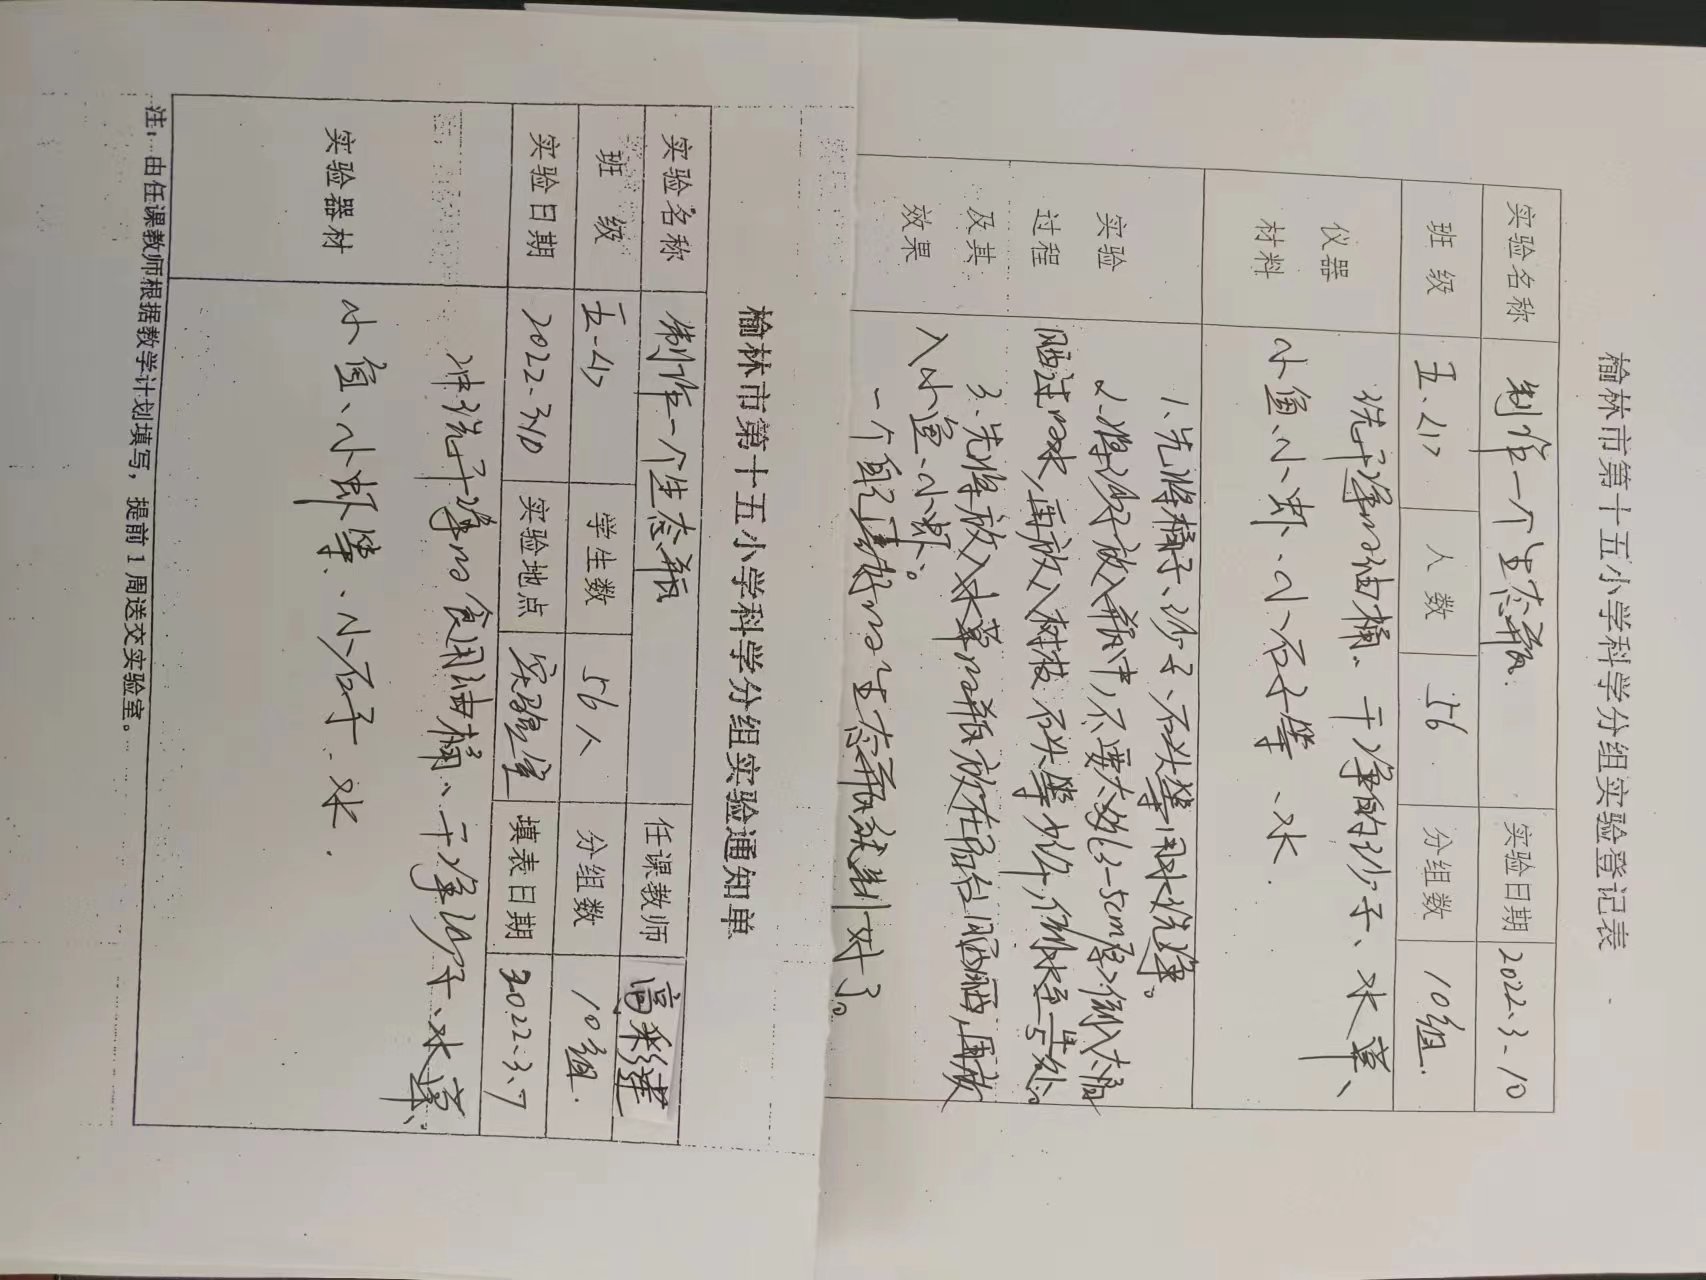 榆林市第十五小学科学分组实验登记表
实验名称 制作一个生态瓶. 实验日期 2022.3.10
班 级 五.(1) 人 数 56 分组数 10组.
仪器 材料 洗干净的油桶、干净的沙子、水草、
小鱼、小虾、小石子等、水.
实验 过程 及其 效果
1、先将桶子、沙子、石头等用水洗净。
2、将沙子放入瓶中,不要太
晒过的水,再放入树枝 石头等
3、先将放入水草的瓶放在阳台
入小鱼、小虾。
一个 的生态瓶就制好了。
榆林市第十五小学科学分组实验通知单
实验名称 制作一个生态瓶 任课教师
班 级 五.(1) 学生数 56人 分组数 10组.
实验日期 2022.3.10 实验地点 实验室 填表日期 2022.3.7
实验器材 冲洗干净的食用油桶、干净沙子、水草、
小鱼、小虾等、小石子、水.
注：由任课教师根据教学计划填写，提前1周送交实验室。